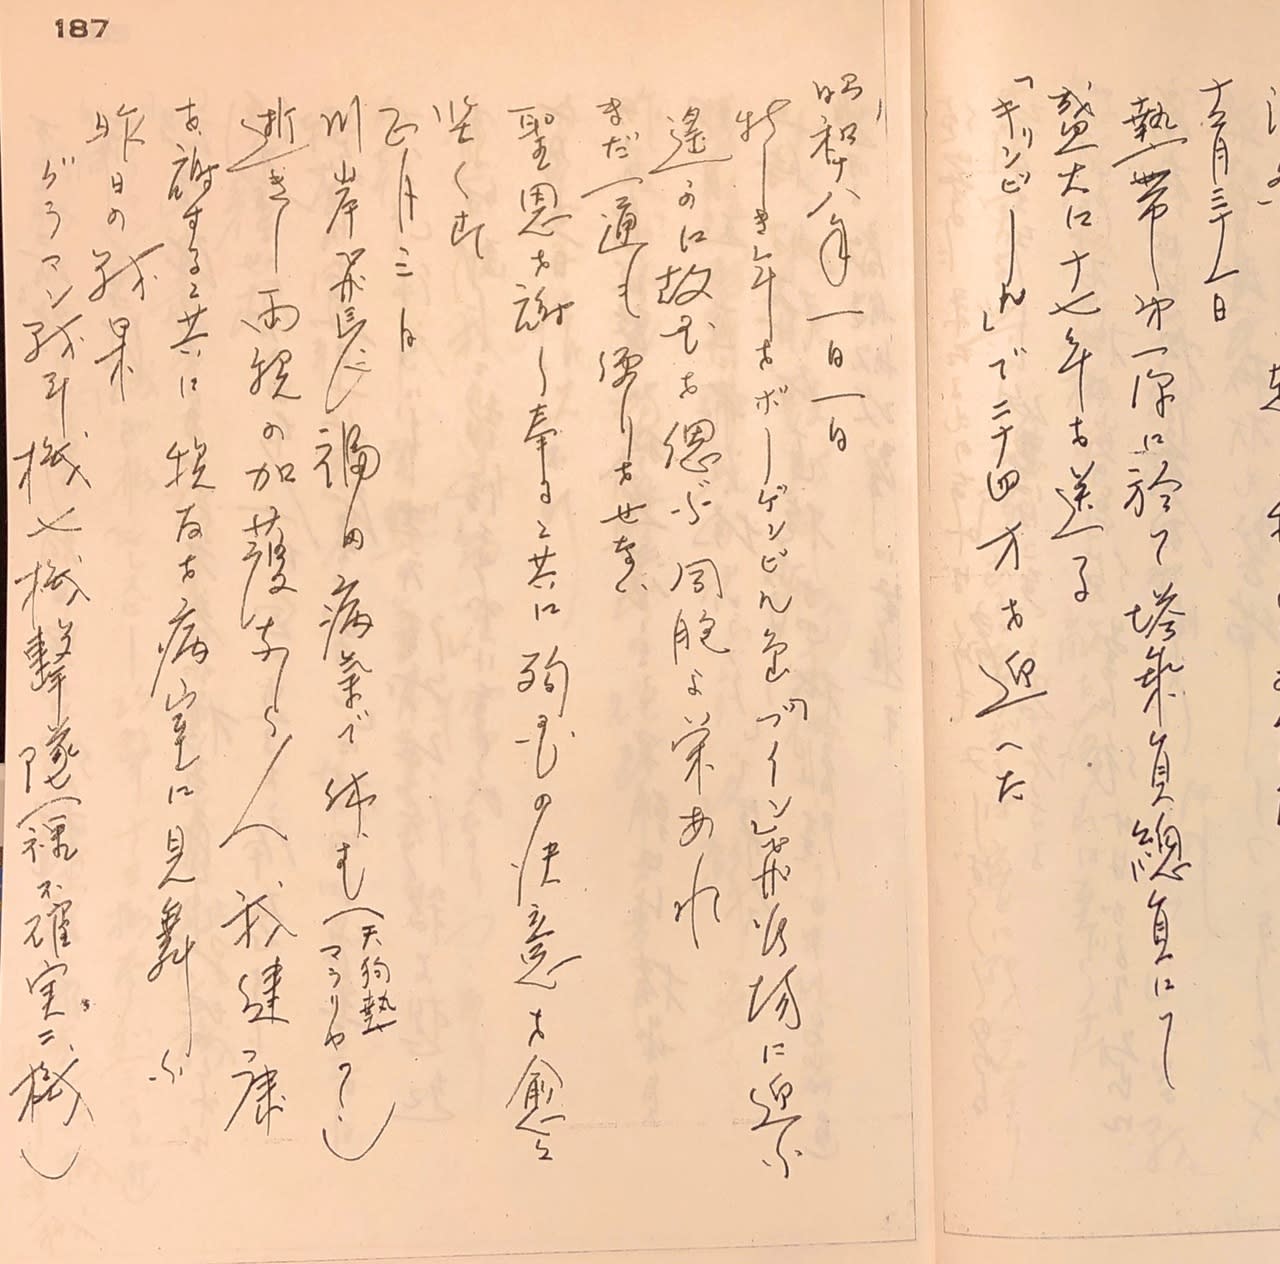 十二月三十一日
熱帯一線に於て搭乗員總員にて
盛大に十七年を送る
「キリンビール」で二十四才を迎へた
187
昭和十八年一月一日
新しき年をボーゲンビル島「ブイン」飛行場に迎ふ
遙かに故国を偲ぶ同胞よ栄あれ
まだ一通も便りをせない
聖恩を謝し奉ると共に殉国の決意を愈々
堅くす
正月三日
川岸飛長 福田病気で休む(天狗熱 マラリヤ?)
逝きし両親の加護ならん 我健康
を謝すると共に 戦友を病室に見舞ふ
昨日の戦果
グラマン戦斗機七機撃墜(種不確実二機)